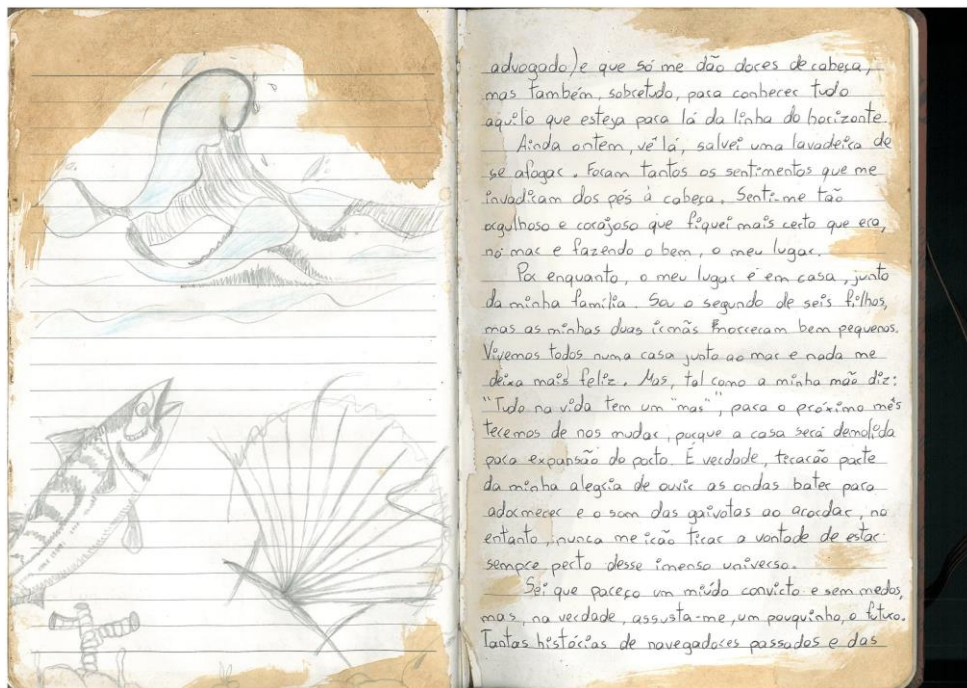 advogado) e que só me dão dores de cabeça,
mas também, sobretudo, para conhecer tudo
aquilo que esteja para lá da linha do horizonte.
Ainda ontem, vê lá, salvei uma lavadeira de
se afogar. Foram tantos os sentimentos que me
invadiram dos pés à cabeça. Senti-me tão
orgulhoso e corajoso que fiquei mais certo que era,
no mar e fazendo o bem, o meu lugar.
Por enquanto, o meu lugar é em casa, junto
da minha família. Sou o segundo de seis filhos,
mas as minhas duas irmãs morreram bem pequenos.
Vivemos todos numa casa junto ao mar e nada me
deixa mais feliz. Mas, tal como a minha mão diz:
"Tudo na vida tem um "mas", para o próximo mês
teremos de nos mudar, porque a casa será demolida
para expansão do porto. É verdade, tirarão parte
da minha alegria de ouvir as ondas bater para
adormecer e o som das gaivotas ao acordar, no
entanto, nunca me irão tirar a vontade de estar
sempre perto desse imenso universo.
Sei que pareço um miúdo convicto e sem medos,
mas, na verdade, assusta-me, um pouquinho, o futuro.
Tantas histórias de navegadores passados e das